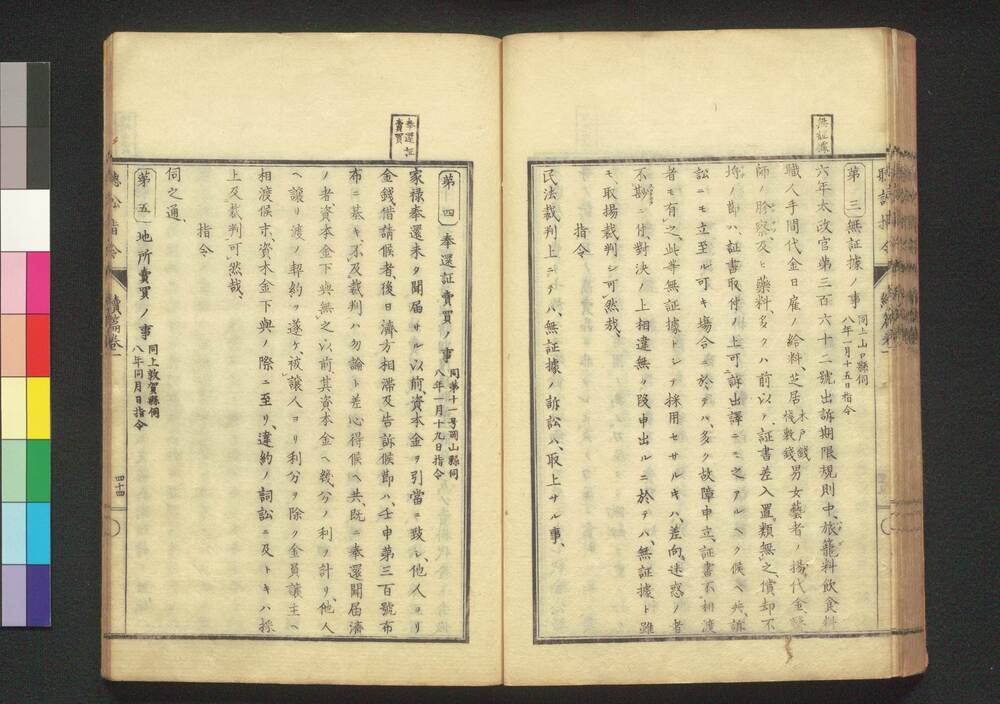 無証據
第三 無証據ノ事 同上山口縣伺 八年一月十五日指令
六年太政官第三百六十二號出訴期限規則中、旅籠料飲食料
職人手間代金日雇ノ給料、芝居 木戸錢 棧敷錢 男女藝者ノ揚代金、醫
師ノ診察及ヒ藥料、多クハ前以テ、証書差入置類無之、償却不
埒ノ節ハ、証書取付ノ上可訴出譯ニ之アルヘク候ヘ共、訴
訟ニモ立至ル可キ場合ニ於テハ、多ク故障申立、証書不相渡
者モ有之、此等無証據トシテ採用セサルキハ、差向、迷惑ノ者
不尠ニ付對決ノ上相違無ク段申出ルニ於テハ、無証據ト雖
モ、取揚裁判シ可然哉、
指令
民法裁判上ニテハ、無証據ノ訴訟ハ、取上サル事、
奉還証
賣買
第四 奉還証賣買ノ事 同第十一号岡山縣伺 八年一月十九日指令
家禄奉還未タ聞届サル以前、資本金ヲ引當ニ致シ、他人ヨリ
金錢借請候者、後日濟方相滞及告訴候節ハ、壬申第三百號布
布ニ基キ、不及裁判ハ勿論ト差心得候ヘ共、既ニ奉還聞届濟
ノ者資本金下與無之以前、其資本金ヘ幾分ノ利ヲ計リ、他人
ヘ譲リ渡ノ契約ヲ遂ケ被譲人ヨリ利分ヲ除ク金員譲主ヘ
相渡候末、資本金下與ノ際ニ至リ、違約ノ詞訟ニ及トキハ採
上及裁判可然哉、
指令
伺之通、
第五 地所賣買ノ事 同上敦賀縣伺 八年同月日指令
聴訟指令 續篇卷一 四十四